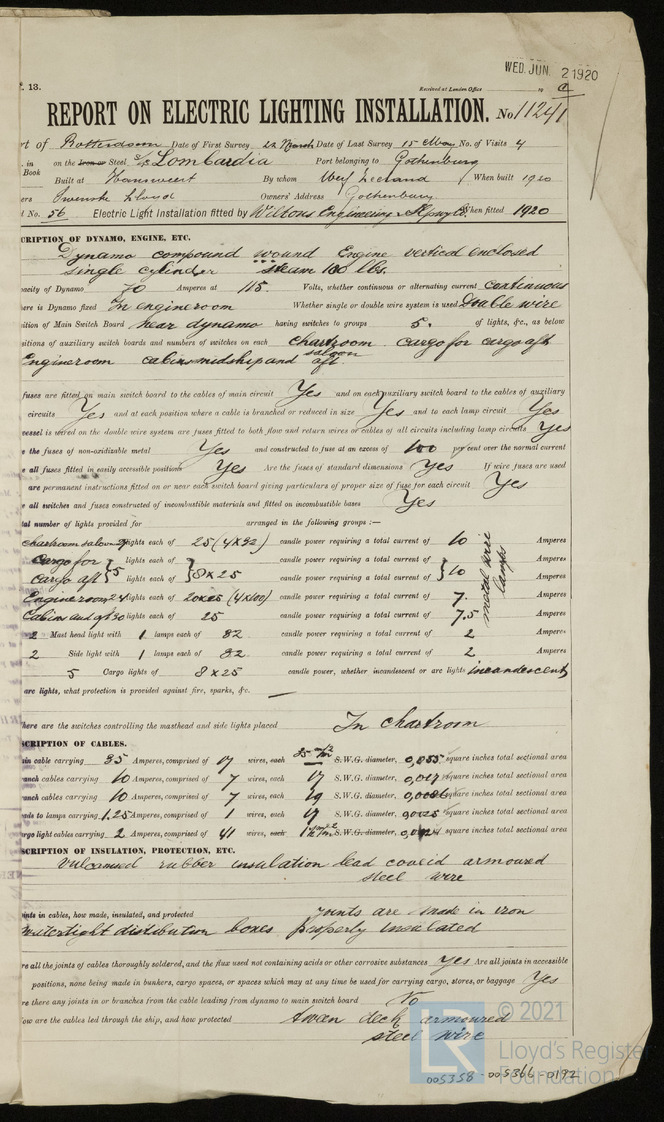 WED. JUN. 2 1920
13.
Received at London Office
REPORT ON ELECTRIC LIGHTING INSTALLATION. No 11241
rt of Rotterdam Date of First Survey 22 March Date of Last Survey 15 May No. of Visits 4
in Book on the Iron or Steel S/S Lombardia Port belonging to Gothenburg
Built at Hansweert By whom Werf Zeeland When built 1920
ers Svenska Lloyd Owners' Address Gothenburg
No. 56 Electric Light Installation fitted by Wiltons Engineering & Slipway Co. When fitted 1920
SCRIPTION OF DYNAMO, ENGINE, ETC.
Dynamo compound wound Engine vertical enclosed
single cylinder steam 100 lbs.
pacity of Dynamo 70 Amperes at 115. Volts, whether continuous or alternating current continuous
here is Dynamo fixed In engineroom Whether single or double wire system is used Double wire
sition of Main Switch Board near dynamo having switches to groups 5. of lights, &c., as below
sitions of auxiliary switch boards and numbers of switches on each chartroom cargo for cargo aft
Engineroom cabins midship and saloon aft
fuses are fitted on main switch board to the cables of main circuit Yes and on each auxiliary switch board to the cables of auxiliary
circuits Yes and at each position where a cable is branched or reduced in size Yes and to each lamp circuit Yes
vessel is wired on the double wire system are fuses fitted to both flow and return wires or cables of all circuits including lamp circuits Yes
re the fuses of non-oxidizable metal Yes and constructed to fuse at an excess of 100 per cent over the normal current
re all fuses fitted in easily accessible positions Yes Are the fuses of standard dimensions Yes If wire fuses are used
are permanent instructions fitted on or near each switch board giving particulars of proper size of fuse for each circuit Yes
re all switches and fuses constructed of incombustible materials and fitted on incombustible bases Yes
tal number of lights provided for arranged in the following groups :—
Chartroom saloon lights each of 25 (4x32) candle power requiring a total current of 10 Amperes
Cargo for lights each of candle power requiring a total current of Amperes
Cargo aft } 5 lights each of } 8 x 25 candle power requiring a total current of } 10 Amperes
Engineroom 24 lights each of 20x25 (4x100) candle power requiring a total current of 7. Amperes
Cabins and aft 30 lights each of 25 candle power requiring a total current of 7.5 Amperes
metal wire lamps
2 Mast head light with 1 lamps each of 32 candle power requiring a total current of 2 Amperes
2 Side light with 1 lamps each of 32 candle power requiring a total current of 2 Amperes
5 Cargo lights of 8 x 25 candle power, whether incandescent or arc lights incandescent
arc lights, what protection is provided against fire, sparks, &c. —
here are the switches controlling the masthead and side lights placed In chartroom
SCRIPTION OF CABLES.
in cable carrying 35 Amperes, comprised of 17 wires, each 35 S.W.G. diameter, 0,055 square inches total sectional area
anch cables carrying 10 Amperes, comprised of 7 wires, each 17 S.W.G. diameter, 0,017 square inches total sectional area
anch cables carrying 10 Amperes, comprised of 7 wires, each 19 S.W.G. diameter, square inches total sectional area
ads to lamps carrying 1.25 Amperes, comprised of 1 wires, each 17 S.W.G. diameter, 0,0025 square inches total sectional area
rgo light cables carrying 2 Amperes, comprised of 41 wires, each S.W.G. diameter, square inches total sectional area
SCRIPTION OF INSULATION, PROTECTION, ETC.
Vulcanised rubber insulation lead coverd armoured
steel wire
ints in cables, how made, insulated, and protected joints are made in iron
watertight distribution boxes properly insulated
re all the joints of cables thoroughly soldered, and the flux used not containing acids or other corrosive substances Yes Are all joints in accessible
positions, none being made in bunkers, cargo spaces, or spaces which may at any time be used for carrying cargo, stores, or baggage Yes
re there any joints in or branches from the cable leading from dynamo to main switch board No
How are the cables led through the ship, and how protected deck armoured
steel wire
© 2021
LR
Lloyd's Register
Foundation
005358-005366-0192